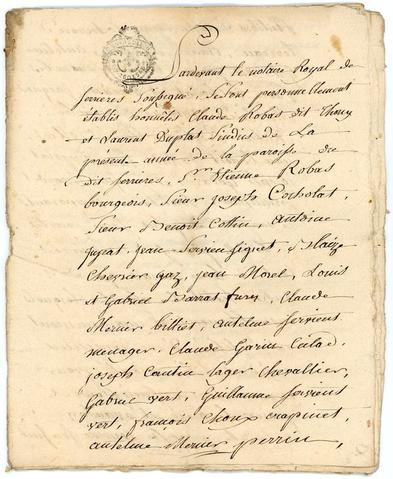 Pardevant le notaire Royal de
ferrieres soussigné, se sont personnellement
établis honnêtes Claude Robas dit
et Laurent Duplat Sindics de La
presente année de la paroisse du
dit ferrieres, Sr. Etienne Robas
bourgeois, Sieur joseph Cocholat,
Sieur Benoit Collin, antoine
jean Servien signet,
Chevrier gaz, jean Morel, Louis
et Gabriel furex, Claude
Mercier billiet, antelme servient
menager, Claude Garin
joseph lager Chevallier,
Gabriel vert, Guillaume servient
vert, françois Choux crapinet,
antelme Mercier perrin,